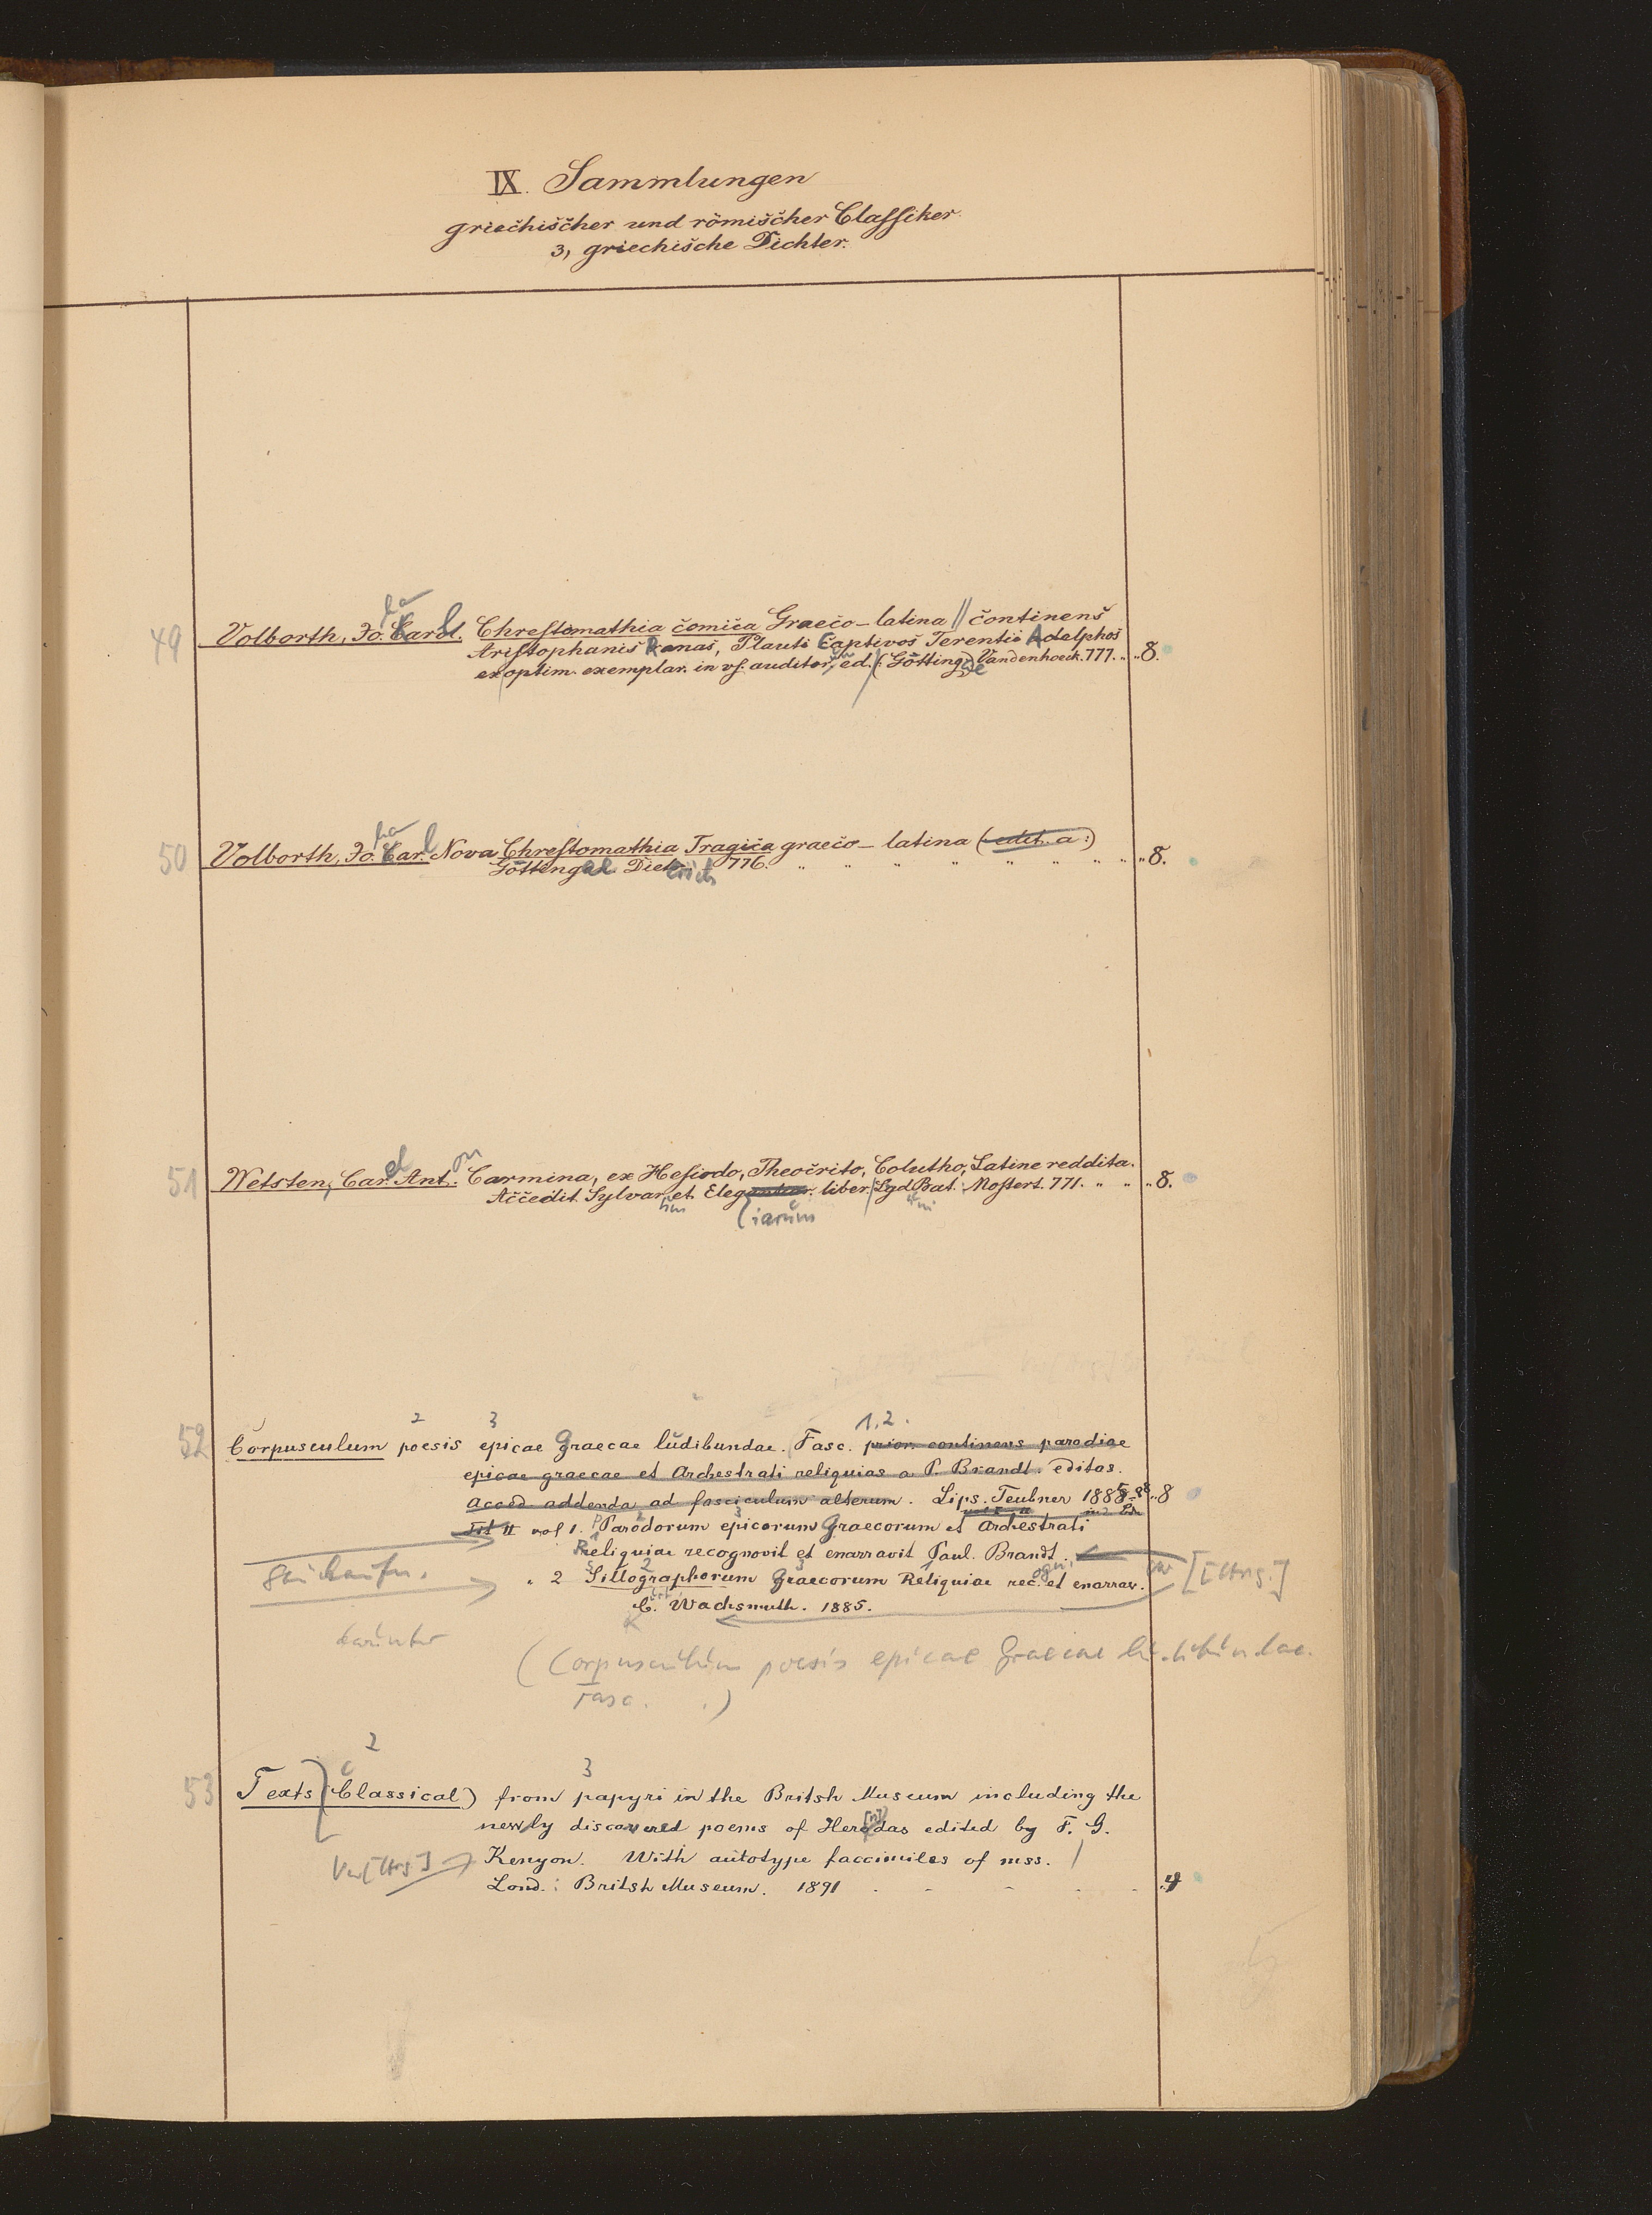 IX. Sammlungen
griechischer und römischer Classiker.
3, griechische Dichter.
49 Volborth, Jo. Carl. Chrestomathia comica Graeco-latina // continens
Aristophanis Ranas, Plauti Captivos Terentii Adelphos
ex optim. exemplar. in vs. auditor. ed. (: Götting. Vandenhoeck. 777. „ „ 8.
50 Volborth, Jo. Carl Nova Chrestomathia Tragica graeco-latina (edit. a :)
Götting. Dietrich 776. „ „ „ „ „ „ „ „ 8.
51 Wetsten, Car. Ant. Carmina, ex Hesiodo, Theocrito, Colutho, Latine reddita.
Accedit Sylvar. et Elegantiar. liber. Lgd Bat. Mostert. 771. „ „ „ 8.
iarum
2 3 1.2.
52 Corpusculum poesis epicae Graecae ludibundae. Fasc. prior. continens parodiae
epicae graecae et Archestrati reliquias a P. Brandt. editas.
Acced addenda ad fasciculum alterum. Lips. Teubner 1885-88 „ 8
II vol 1. Parodorum epicorum Graecorum et Archestrati
Reliquiae recognovit et enarravit Paul. Brandt.
„ 2 Sillographorum Graecorum Reliquiae rec. et enarrav. [Hrsg.]
C. Wachsmuth. 1885.
darunter
(Corpusculum poesis epicae Graecae ludibundae.
Fasc. .)
2 3
53 Texts (Classical) from papyri in the Britsh Museum including the
newly discovered poems of Herodas edited by F. G.
Kenyon. With autotype faccimiles of mss.
Lond.: Britsh Museum. 1891 - - - - - „ 4